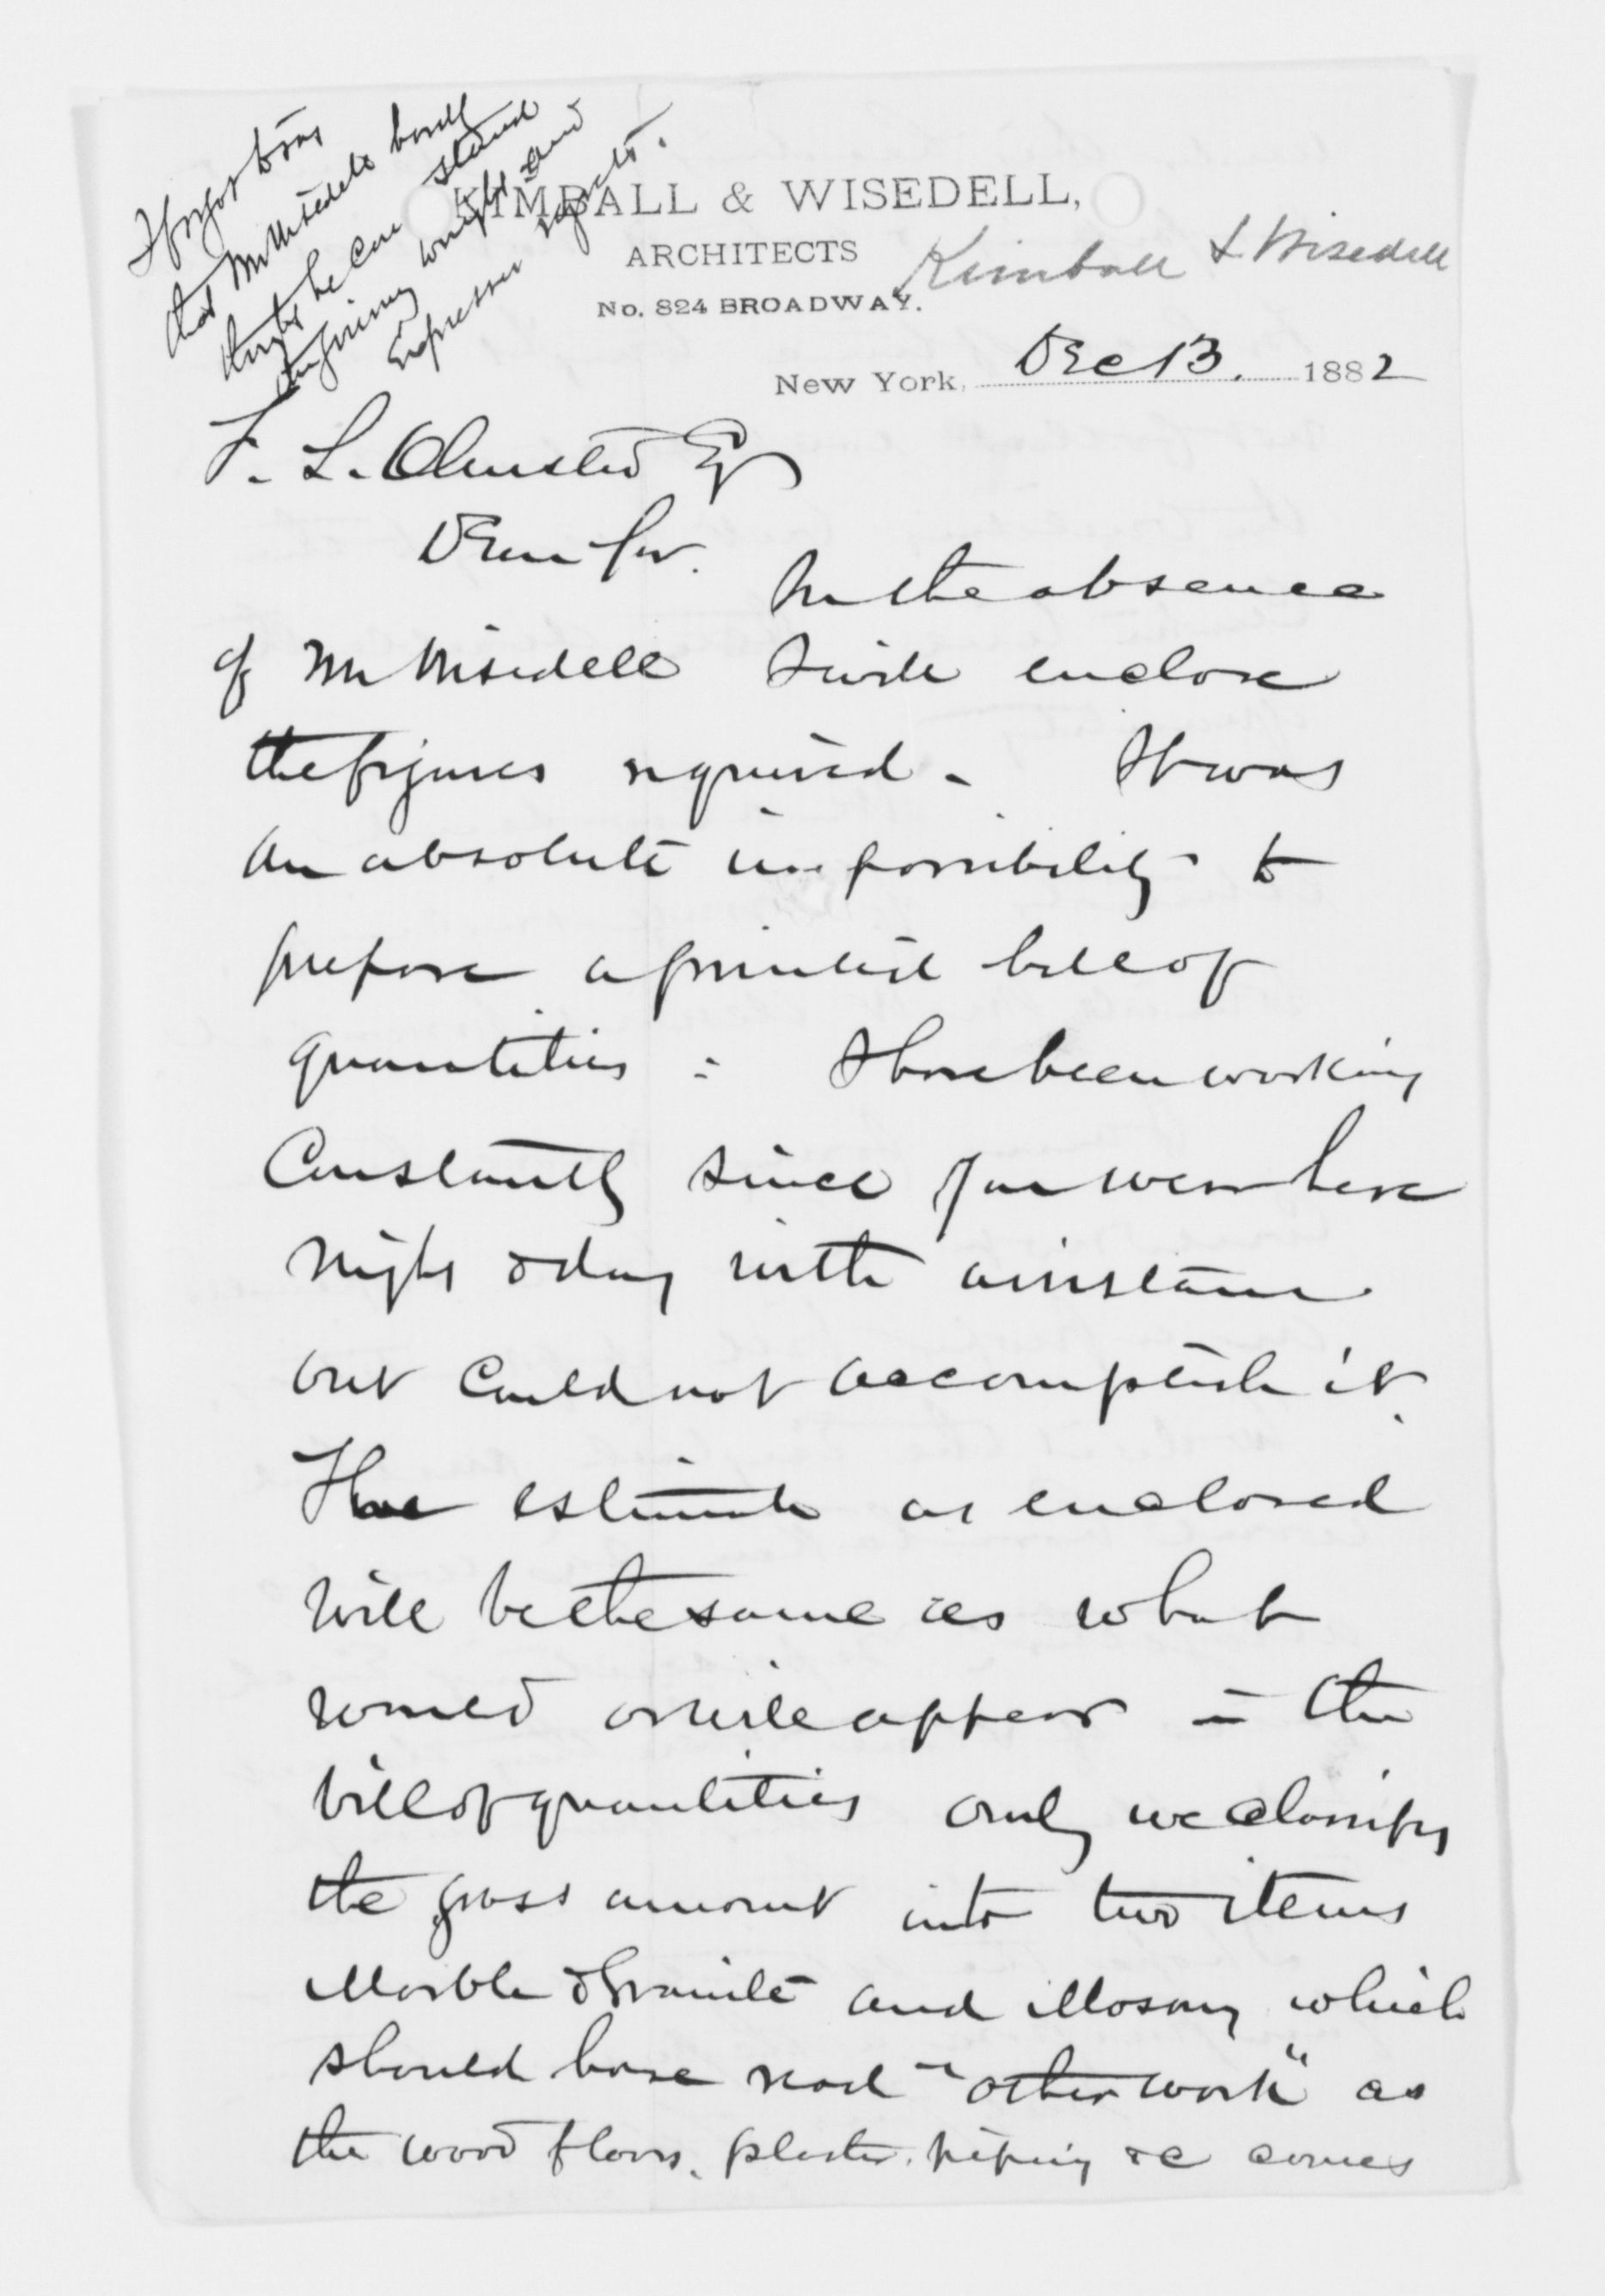 I forgot to say
that Mr Wisedell
thinks he can stand
inquiring and
Expresses regrets.
KIMBALL & WISEDELL,
ARCHITECTS
No. 824 BROADWAY.
Kimball & Wisedell
New York, Dec 13. 1882
F. L. Olmsted Esq
Dear Sir.
In the absence
of Mr Wisedell I will enclose
the figures required - It was
an absolute impossibility to
prepare a printed bill of
quantities : I have been working
Constantly since you were here
night & day with assistance
but could not accomplish it.
The estimate as enclosed
will be the same as what
would or will appear in the
bill of quantities only we classify
the gross amount into two items
Marble & Granite and Masonry which
should have read "other work" as
the wood floors, plaster, piping &c comes